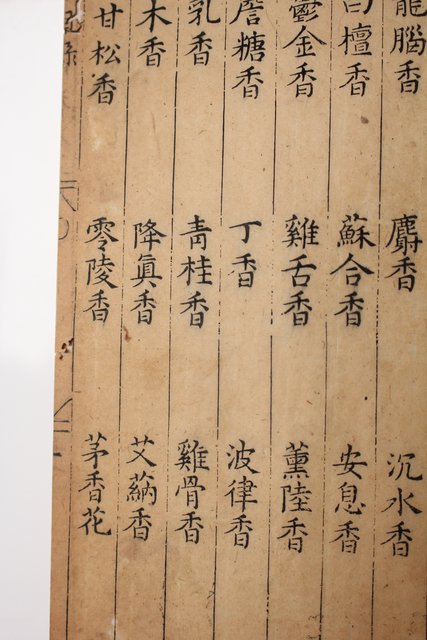 龍腦香 麝香 沉水香
白檀香 蘇合香 安息香
鬱金香 雞舌香 薰陸香
詹糖香 丁香 波律香
乳香 青桂香 雞骨香
木香 降眞香 艾蒳香
甘松香 零陵香 茅香花